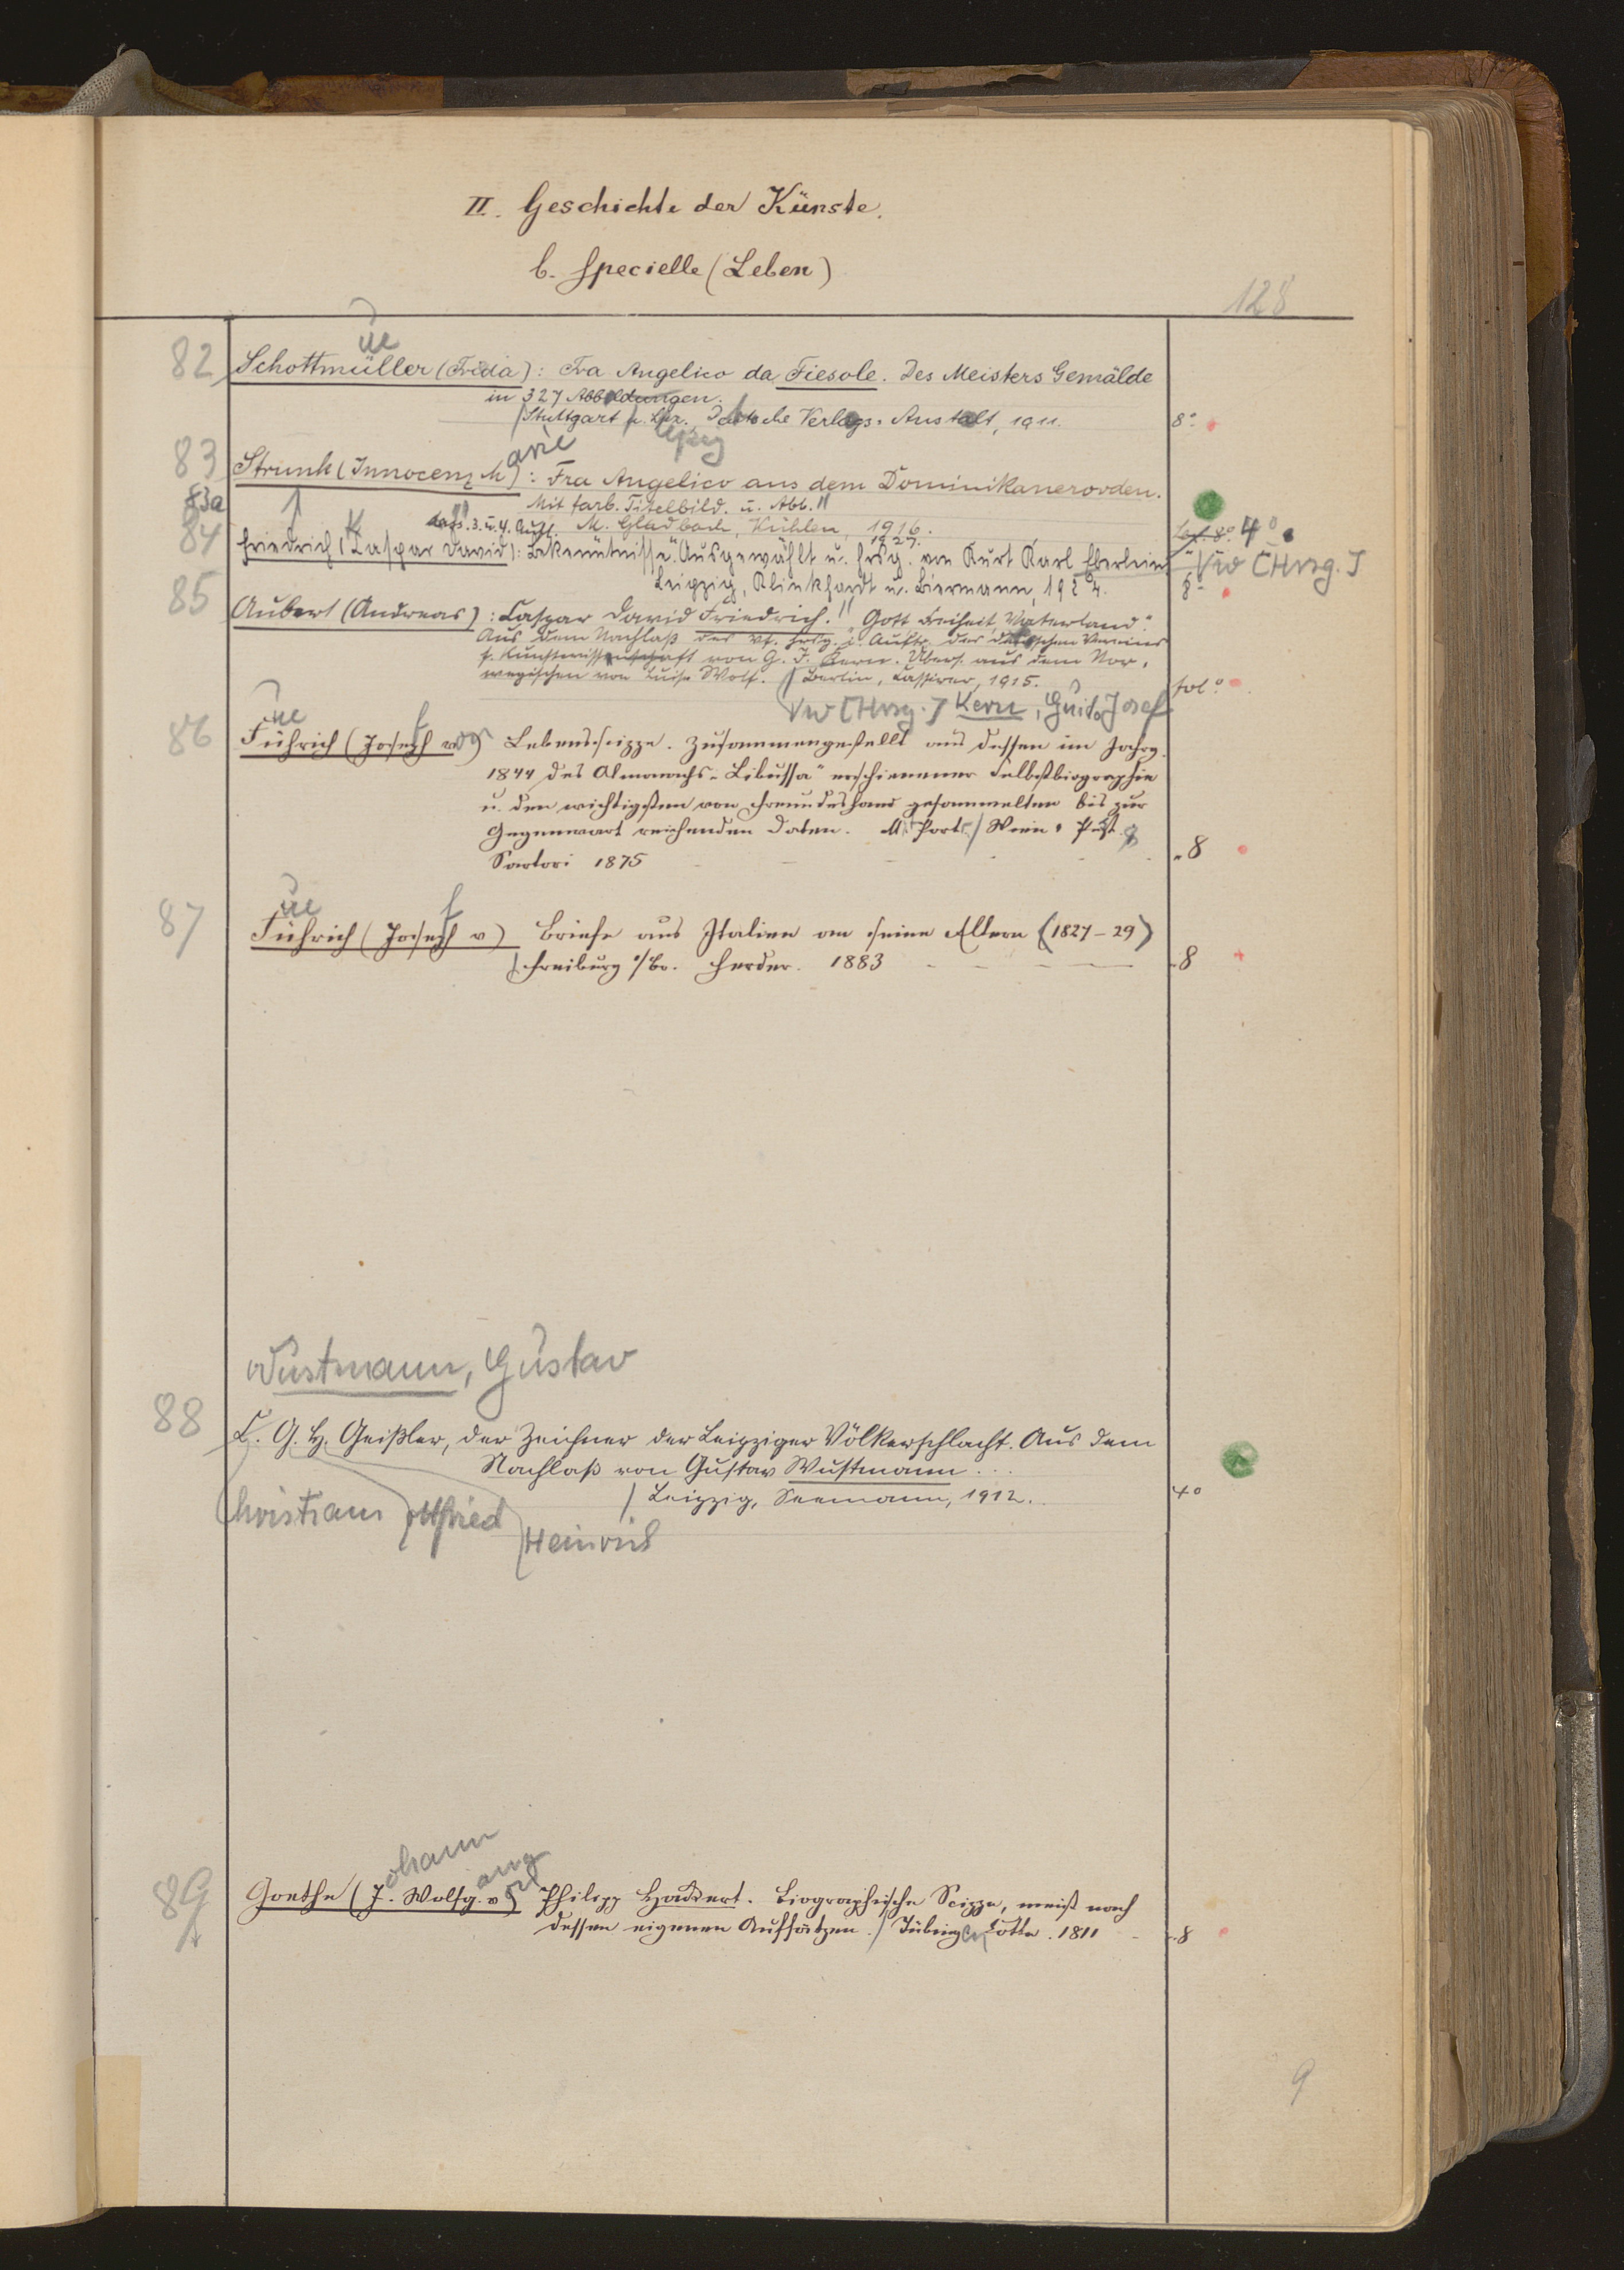 II. Geschichte der Künste.
b. Specielle (Leben)
128
ue
82 Schottmüller (Frida): Fra Angelico da Fiesole. Des Meisters Gemälde
in 327 Abbildungen.
Stuttgart u. Lpz. Deutsche Verlags-Anstalt, 1911. 8°
eipzig
arie
83 Strunk (Innocenz M): Fra Angelico aus dem Dominikanerorden.
Mit farb. Titelbild. u. Abb.
M. Gladbach, Kühlen, 1916. Lex. 8° 4°
83a dass. 3. u. 4. Aufl. 1927.
K
84 Friedrich (Caspar David): Bekenntnisse. Ausgewählt u. hrsg. von Kurt Karl Eberlein Vw [Hrsg.]
Leipzig, Klinkhardt u. Biermann, 1924. 8°
85 Aubert (Andreas): Caspar David Friedrich. "Gott Freiheit, Vaterland."
Aus dem Nachlaß des Vf. hrsg. i. Auftr. des deutschen Vereins
f. Kunstwissenschaft von G. J. Kern. Übers. aus dem Nor-
wegischen von Luise Wolf. Berlin, Cassirer, 1915. fol°
Vw [Hrsg.] Kern, Guido Josef
ue f
86 Führich (Joseph von) Lebensscizze. Zusammengestellt aus dessen im Jahrg.
1844 des Almanachs "Libussa" erschienener Selbstbiographie
u. den wichtigsten von Freundeshand gesammelten bis zur
Gegenwart reichenden Daten. M. Port. Wien & Pest
Sartori 1875 8
ue f
87 Führich (Joseph v) Briefe aus Italien an seine Eltern (1827-29)
Freiburg i/Br. Herder. 1883 8
Wustmann, Gustav
88 C. G. H. Geißler, der Zeichner der Leipziger Völkerschlacht. Aus dem
Nachlaß von Gustav Wustmann...
Leipzig, Seemann, 1912. 4°
Christian Gottfried
Heinrich
ohann
ang
89 Goethe (J. Wolfg. v) Philipp Hackert. Biographische Scizze, meist nach
dessen eigenen Aufsätzen. Tübingen Cotta. 1811 8
9